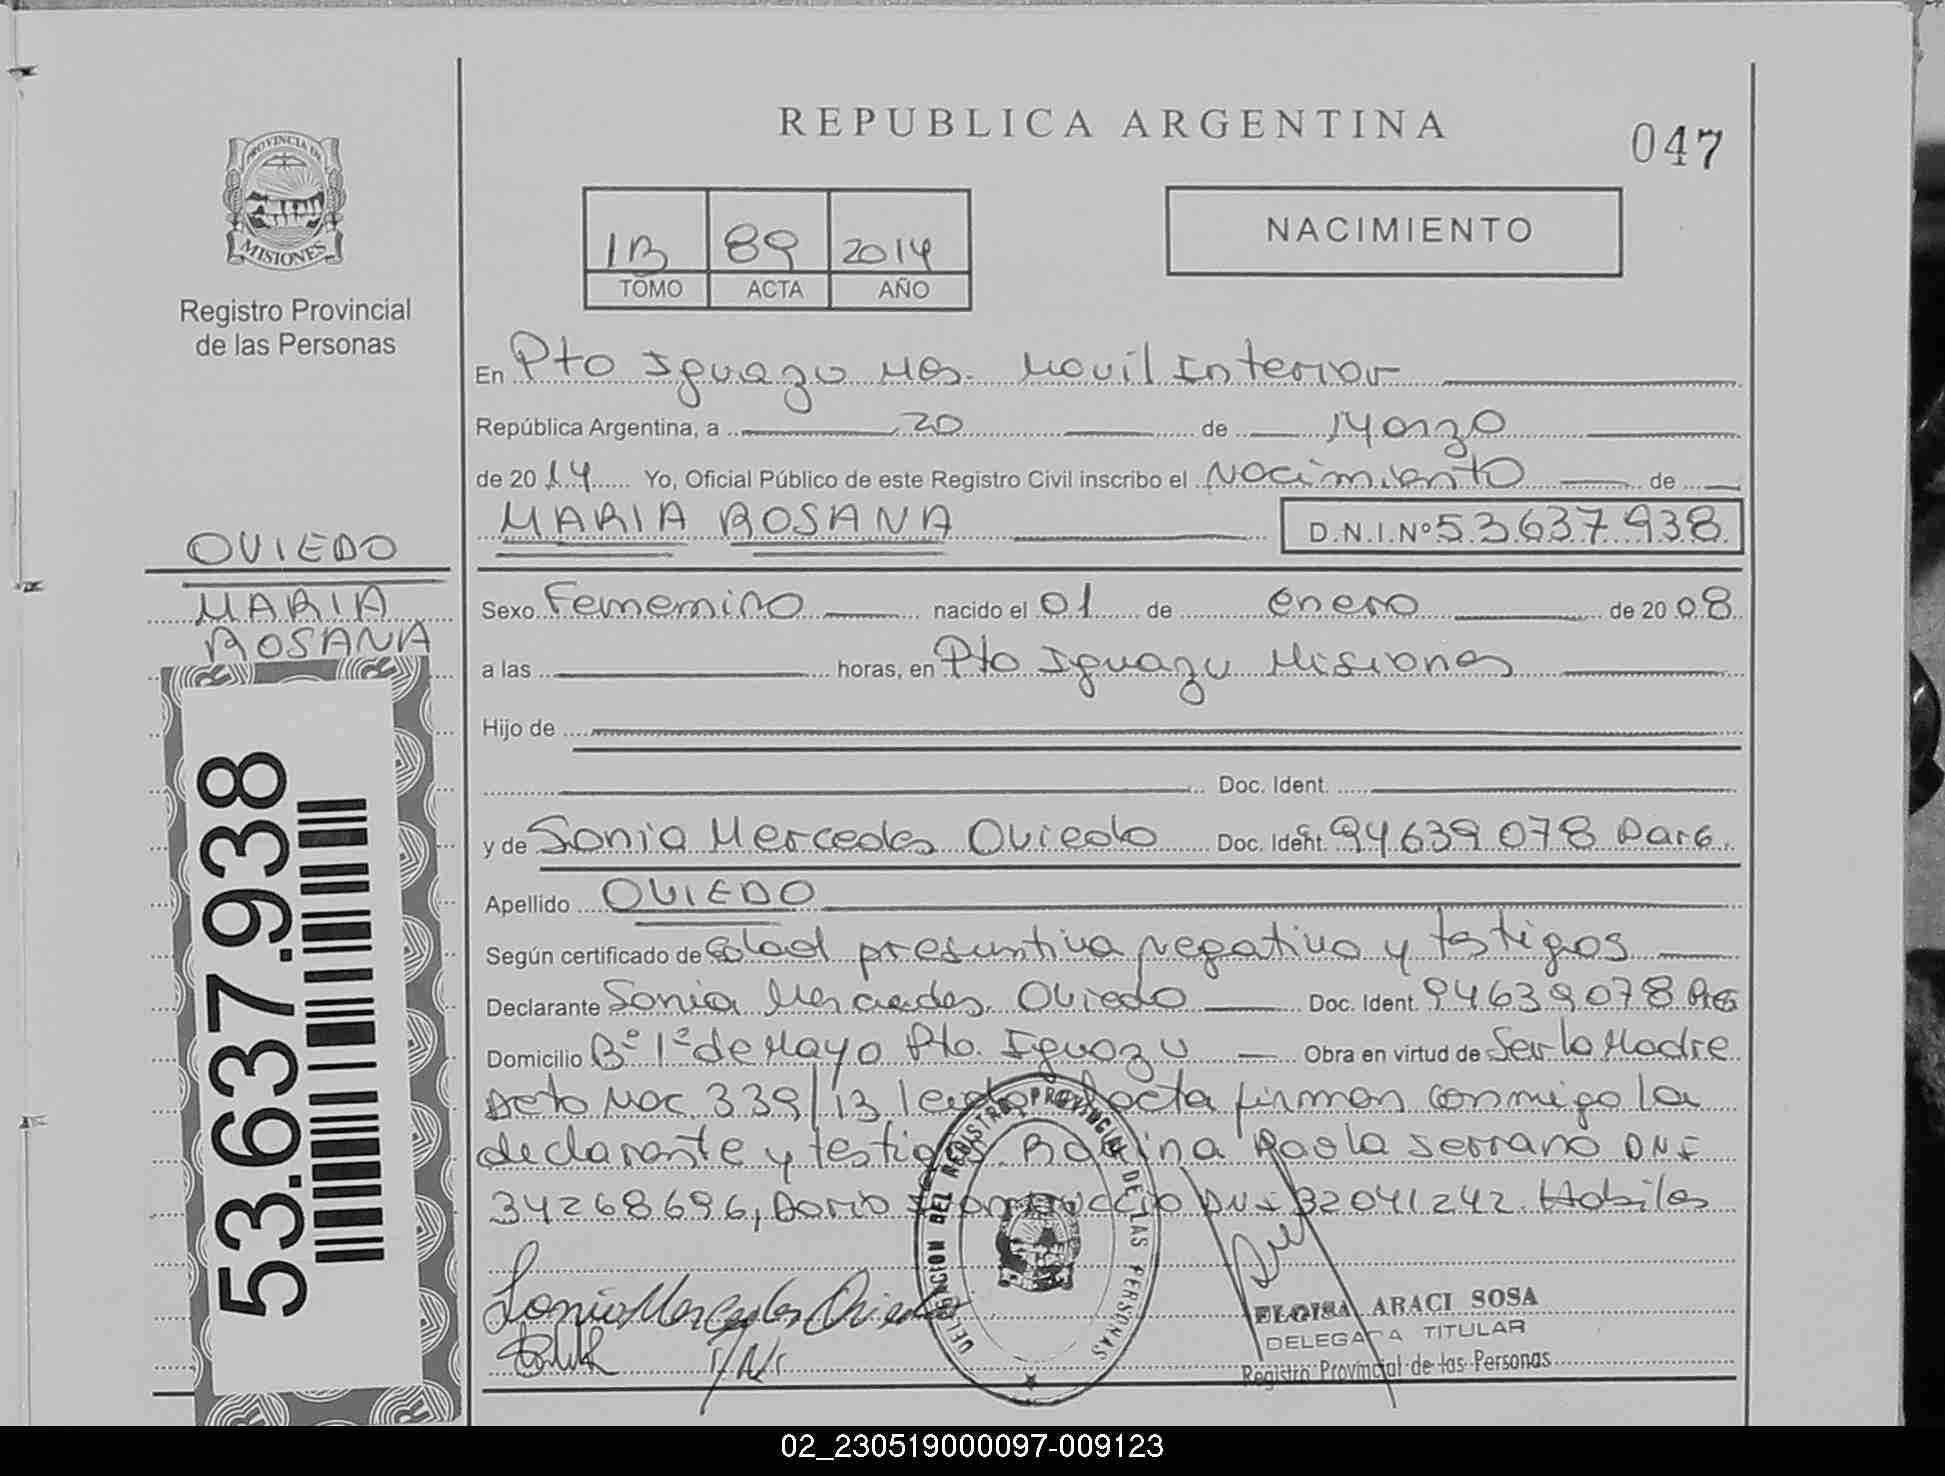 REPUBLICA ARGENTINA
047
PROVINCIA DE
MISIONES
Registro Provincial
de las Personas
1B 89 2014
TOMO ACTA AÑO
NACIMIENTO
En Pto Iguazu Mos. Movil Interior
República Argentina, a 20 de Marzo
de 2014 Yo, Oficial Público de este Registro Civil inscribo el Nacimiento de
MARIA ROSANA D.N.I.Nº 53.637.938
OVIEDO
MARIA
ROSANA
53.637.938
Sexo Femenino nacido el 01 de enero de 2008
a las horas, en Pto Iguazu Misiones
Hijo de
Doc. Ident.
y de Sonia Mercedes Oviedo Doc. Ident. 94.639.078 Parg.
Apellido OVIEDO
Según certificado de edad presuntiva negativa y testigos
Declarante Sonia Mercedes Oviedo Doc. Ident. 94639078
Domicilio Bº 1º de Mayo Pto. Iguazu Obra en virtud de Ser la Madre
Acto Nac. 339/13 leida el acta firman conmigo la
declarante y testigos Paola Serrano DNI
34268696, Dario DNI 32041242. Habiles
Sonia Mercedes Oviedo
DELEGACION DEL REGISTRO PROVINCIAL DE LAS PERSONAS
ELOISA ARACI SOSA
DELEGADA TITULAR
Registro Provincial de las Personas
02_230519000097-009123